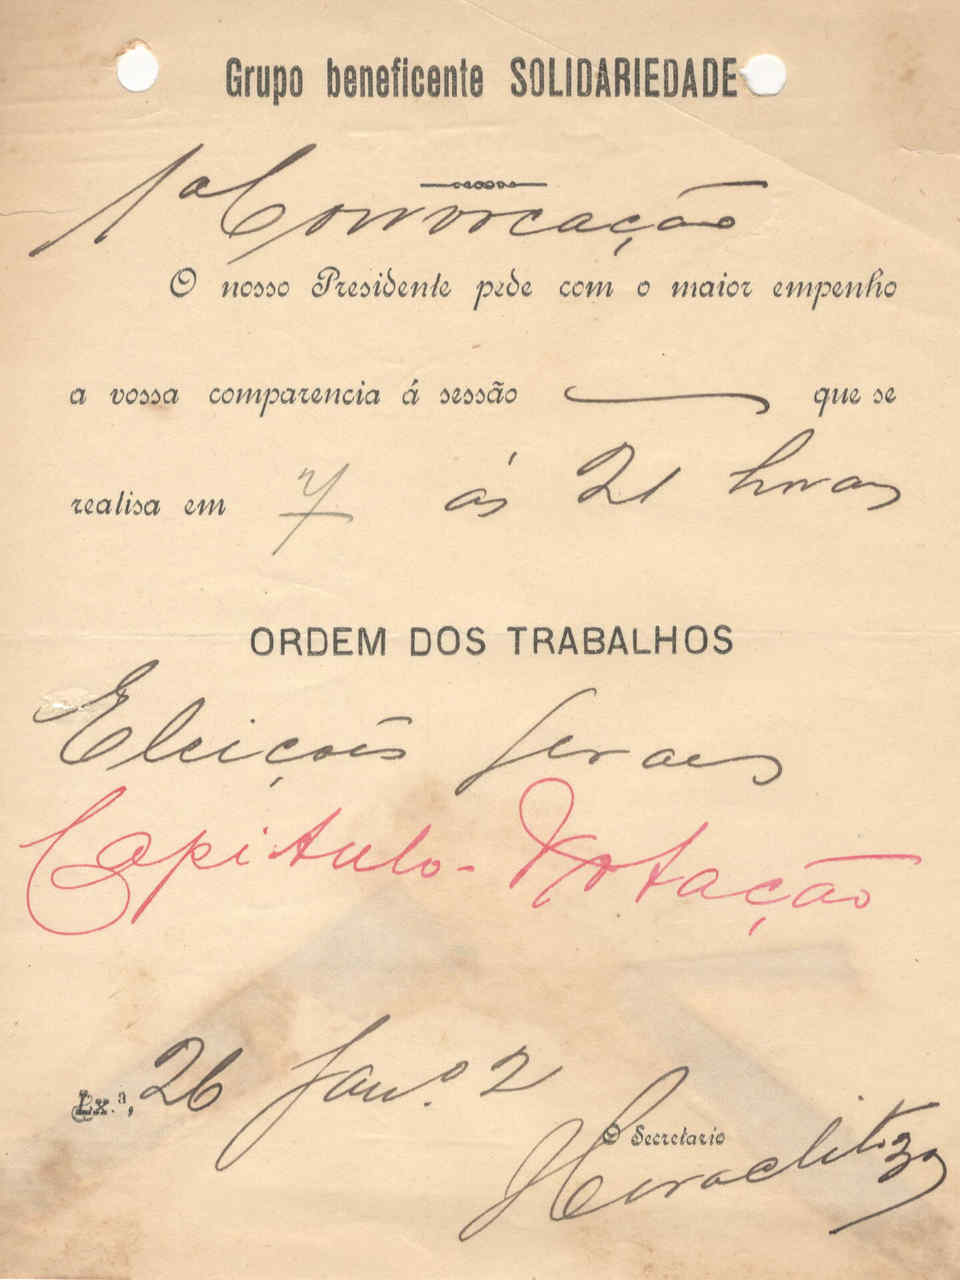 Grupo beneficente SOLIDARIEDADE
1ª Convocação
O nosso Presidente pede com o maior empenho
a vossa comparencia á sessão que se
realisa em 7 ás 21 horas
ORDEM DOS TRABALHOS
Eleições geraes
Capitulo - Votação
Lx.ª, 26 Janº. 2
O Secretario